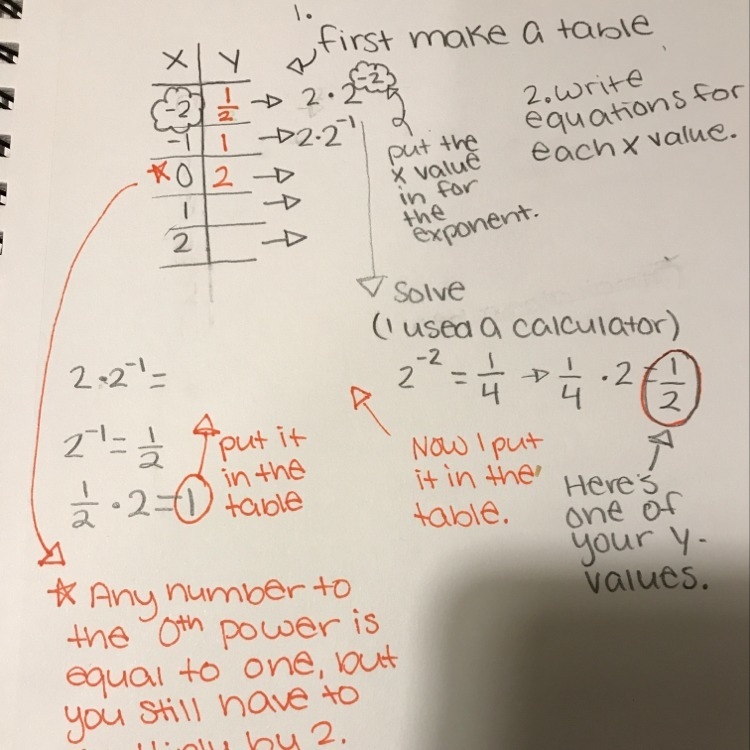 1.
first make a table
X Y
-2 1/2 → 2 · 2^-2
-1 1 → 2 · 2^-1
☆ 0 2 →
1 →
2 →
put the
x value
in for
the
exponent.
2. write
equations for
each x value.
Solve
(I used a calculator)
2^-2 = 1/4 → 1/4 · 2 = 1/2
Now I put
it in the
table.
Here's
one of
your y-
values.
2 · 2^-1 =
2^-1 = 1/2
1/2 · 2 = 1
put it
in the
table
☆ Any number to
the 0th power is
equal to one, but
you still have to
by 2.